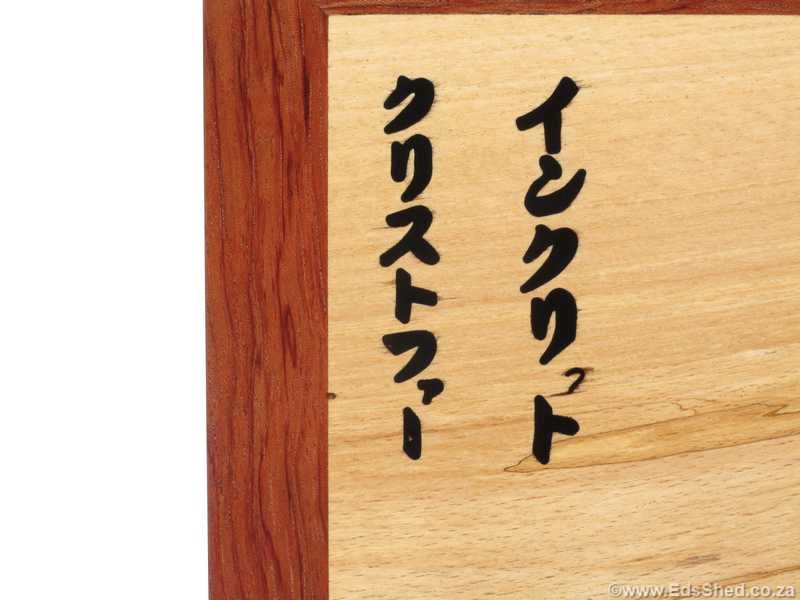 インクリット
クリストファー
©www.EdsShed.co.za